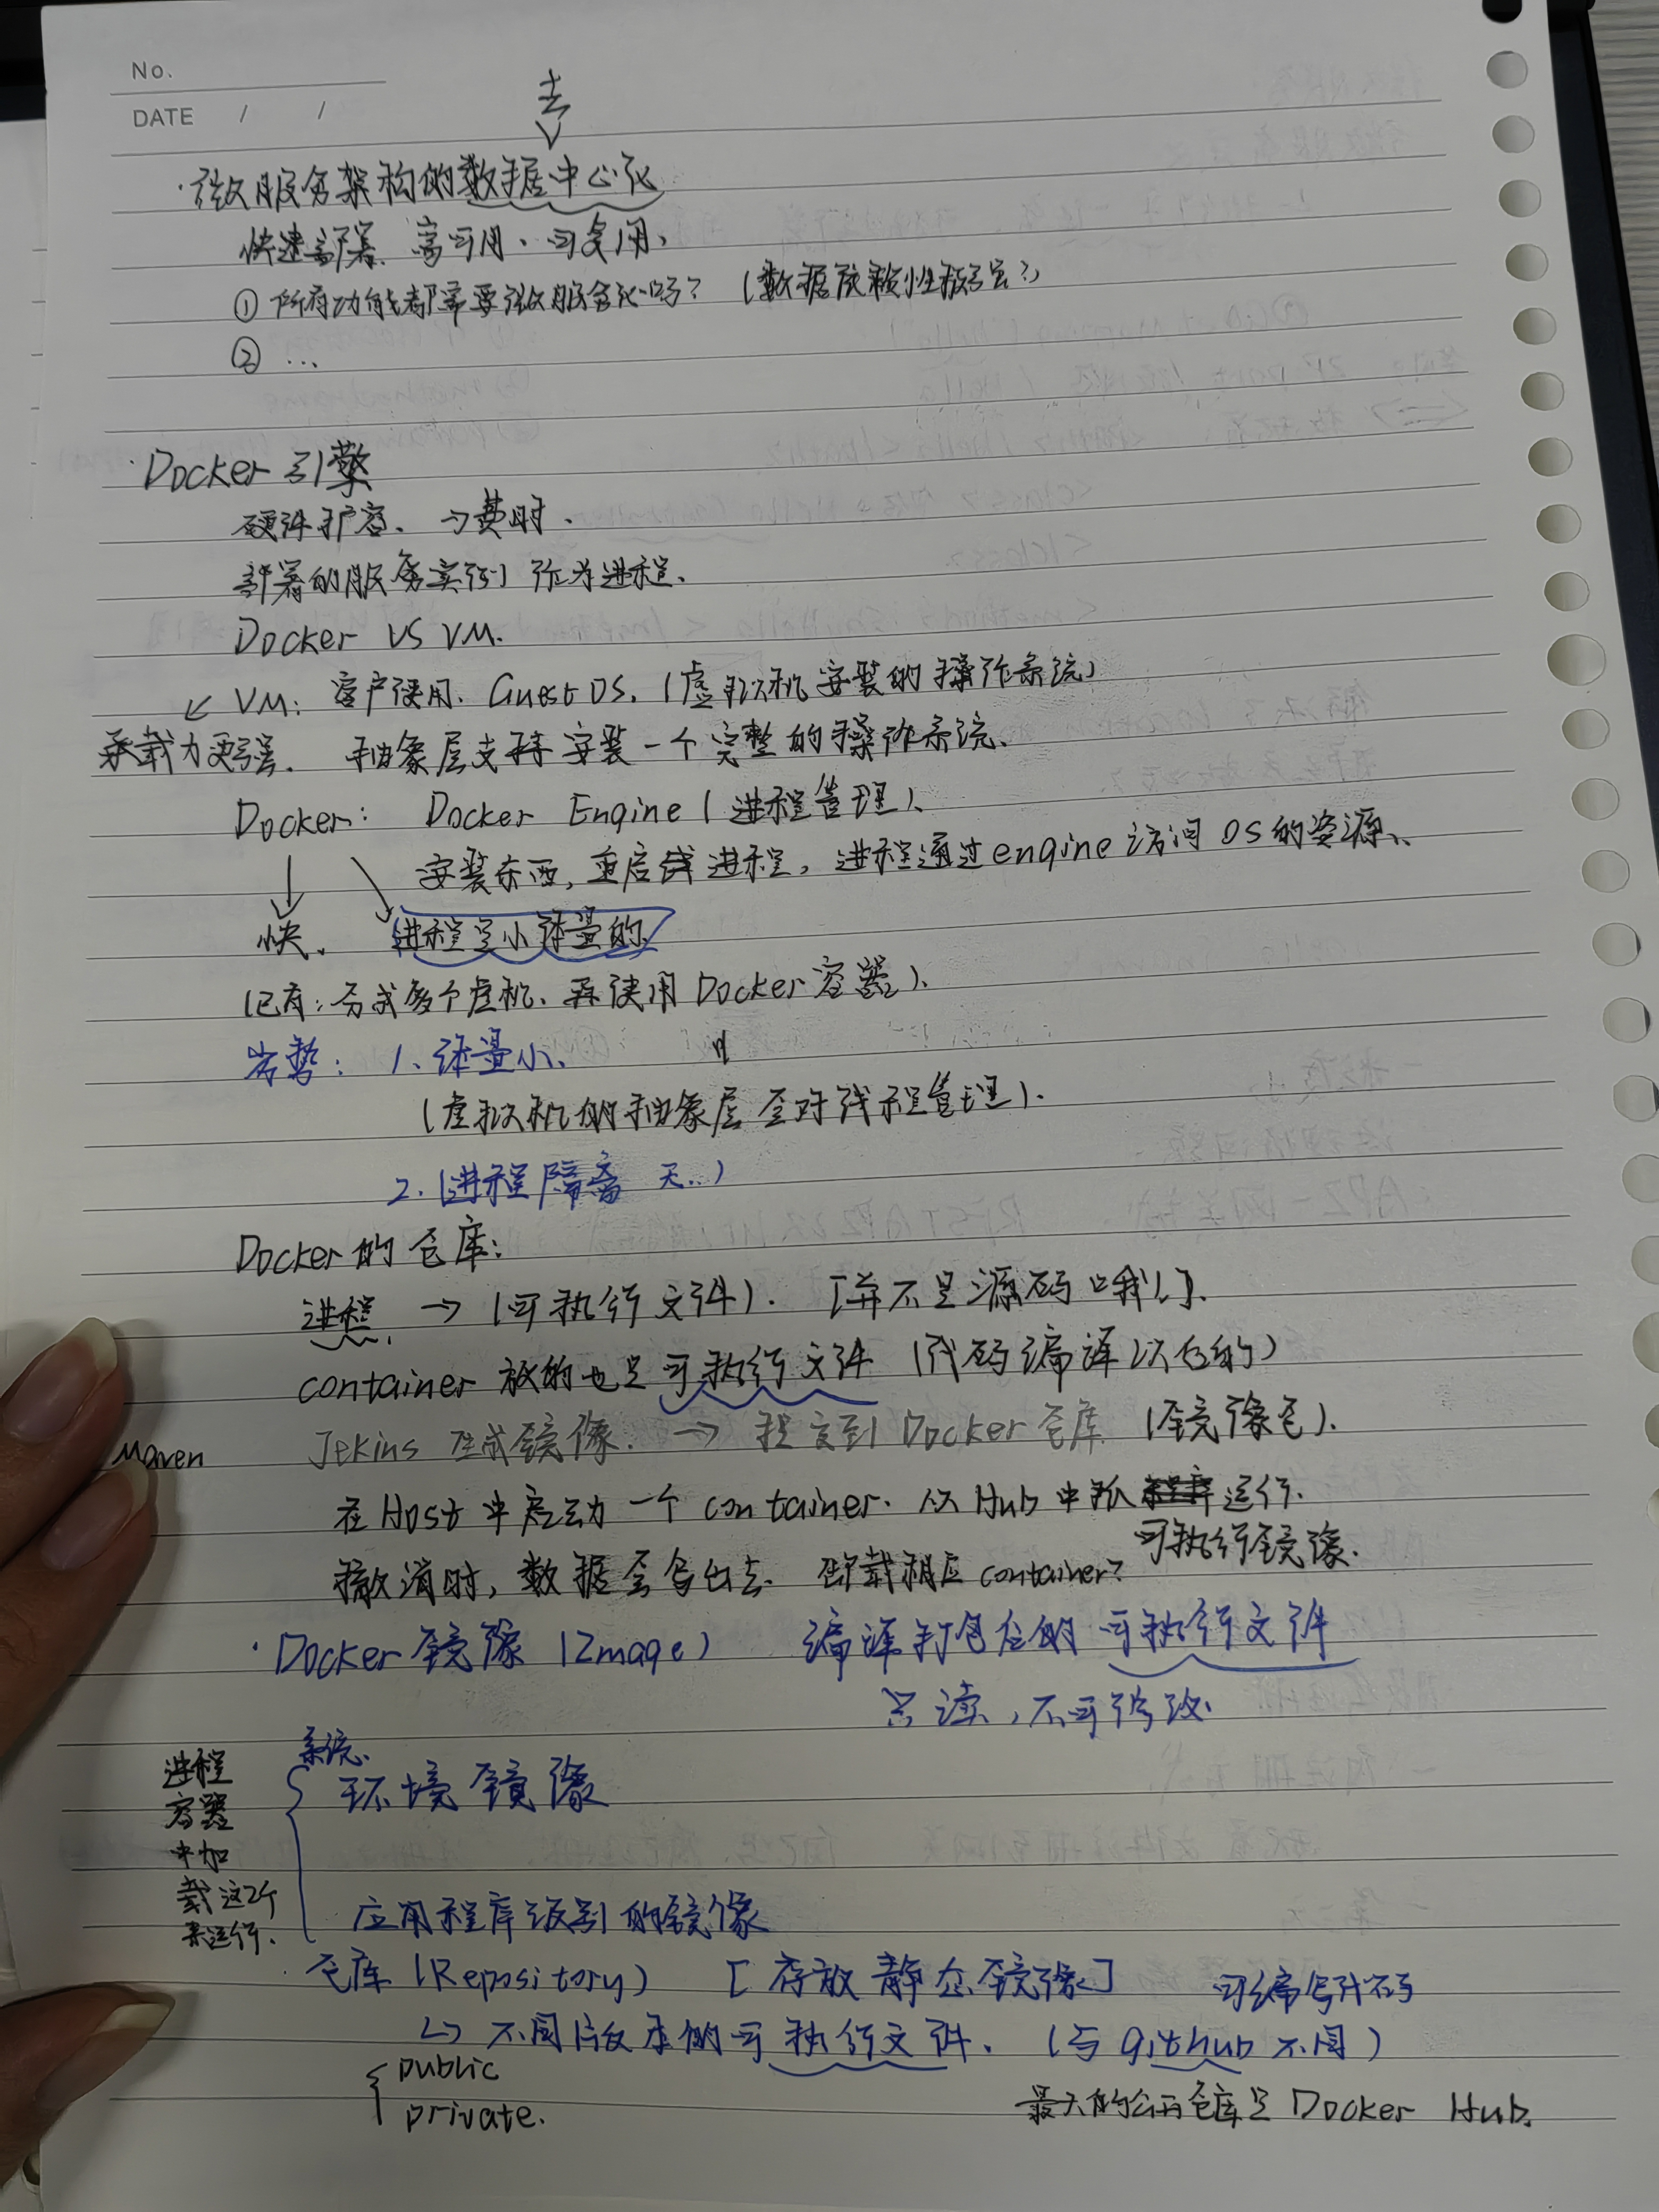 No.
DATE / /
去
·微服务架构的数据中心化
快速部署、高可用、可复用、
① 所有功能都需要微服务化吗? (数据依赖性极高?)
② ...
·Docker 引擎
硬件扩容、→费时.
部署的服务实例 作为进程.
Docker VS VM.
VM: 客户使用. Guest OS. (虚拟机安装的操作系统)
承载力更强. 抽象层支持安装一个完整的操作系统.
Docker: Docker Engine (进程管理).
安装东西, 重启 进程, 进程通过engine访问 OS的资源.
快. 进程是小体量的
(已有: 分成多个虚机、再使用Docker容器).
劣势: 1. 体量小.
(虚拟机的抽象层 针对线程管理).
2. (进程隔离 天...)
Docker的仓库:
进程. → (可执行文件). [并不是源码哦!].
container 放的也是可执行文件 (代码编译以后的)
Maven Jekins 生成镜像. → 提交到 Docker仓库 (镜像包).
在Host中启动一个container. 从Hub中 运行.
可执行镜像.
撤消时, 数据会写出去. 卸载相应container?
·Docker镜像 (Image) 编译打包后的可执行文件
只读, 不可修改.
系统.
环境镜像
进程
容器
中加
载这2个
来运行.
应用程序级别的镜像
·仓库 (Repository) [存放静态镜像] 可编写代码
↳ 不同版本的可执行文件. (与github不同)
public
private.
最大的公开仓库是 Docker Hub.